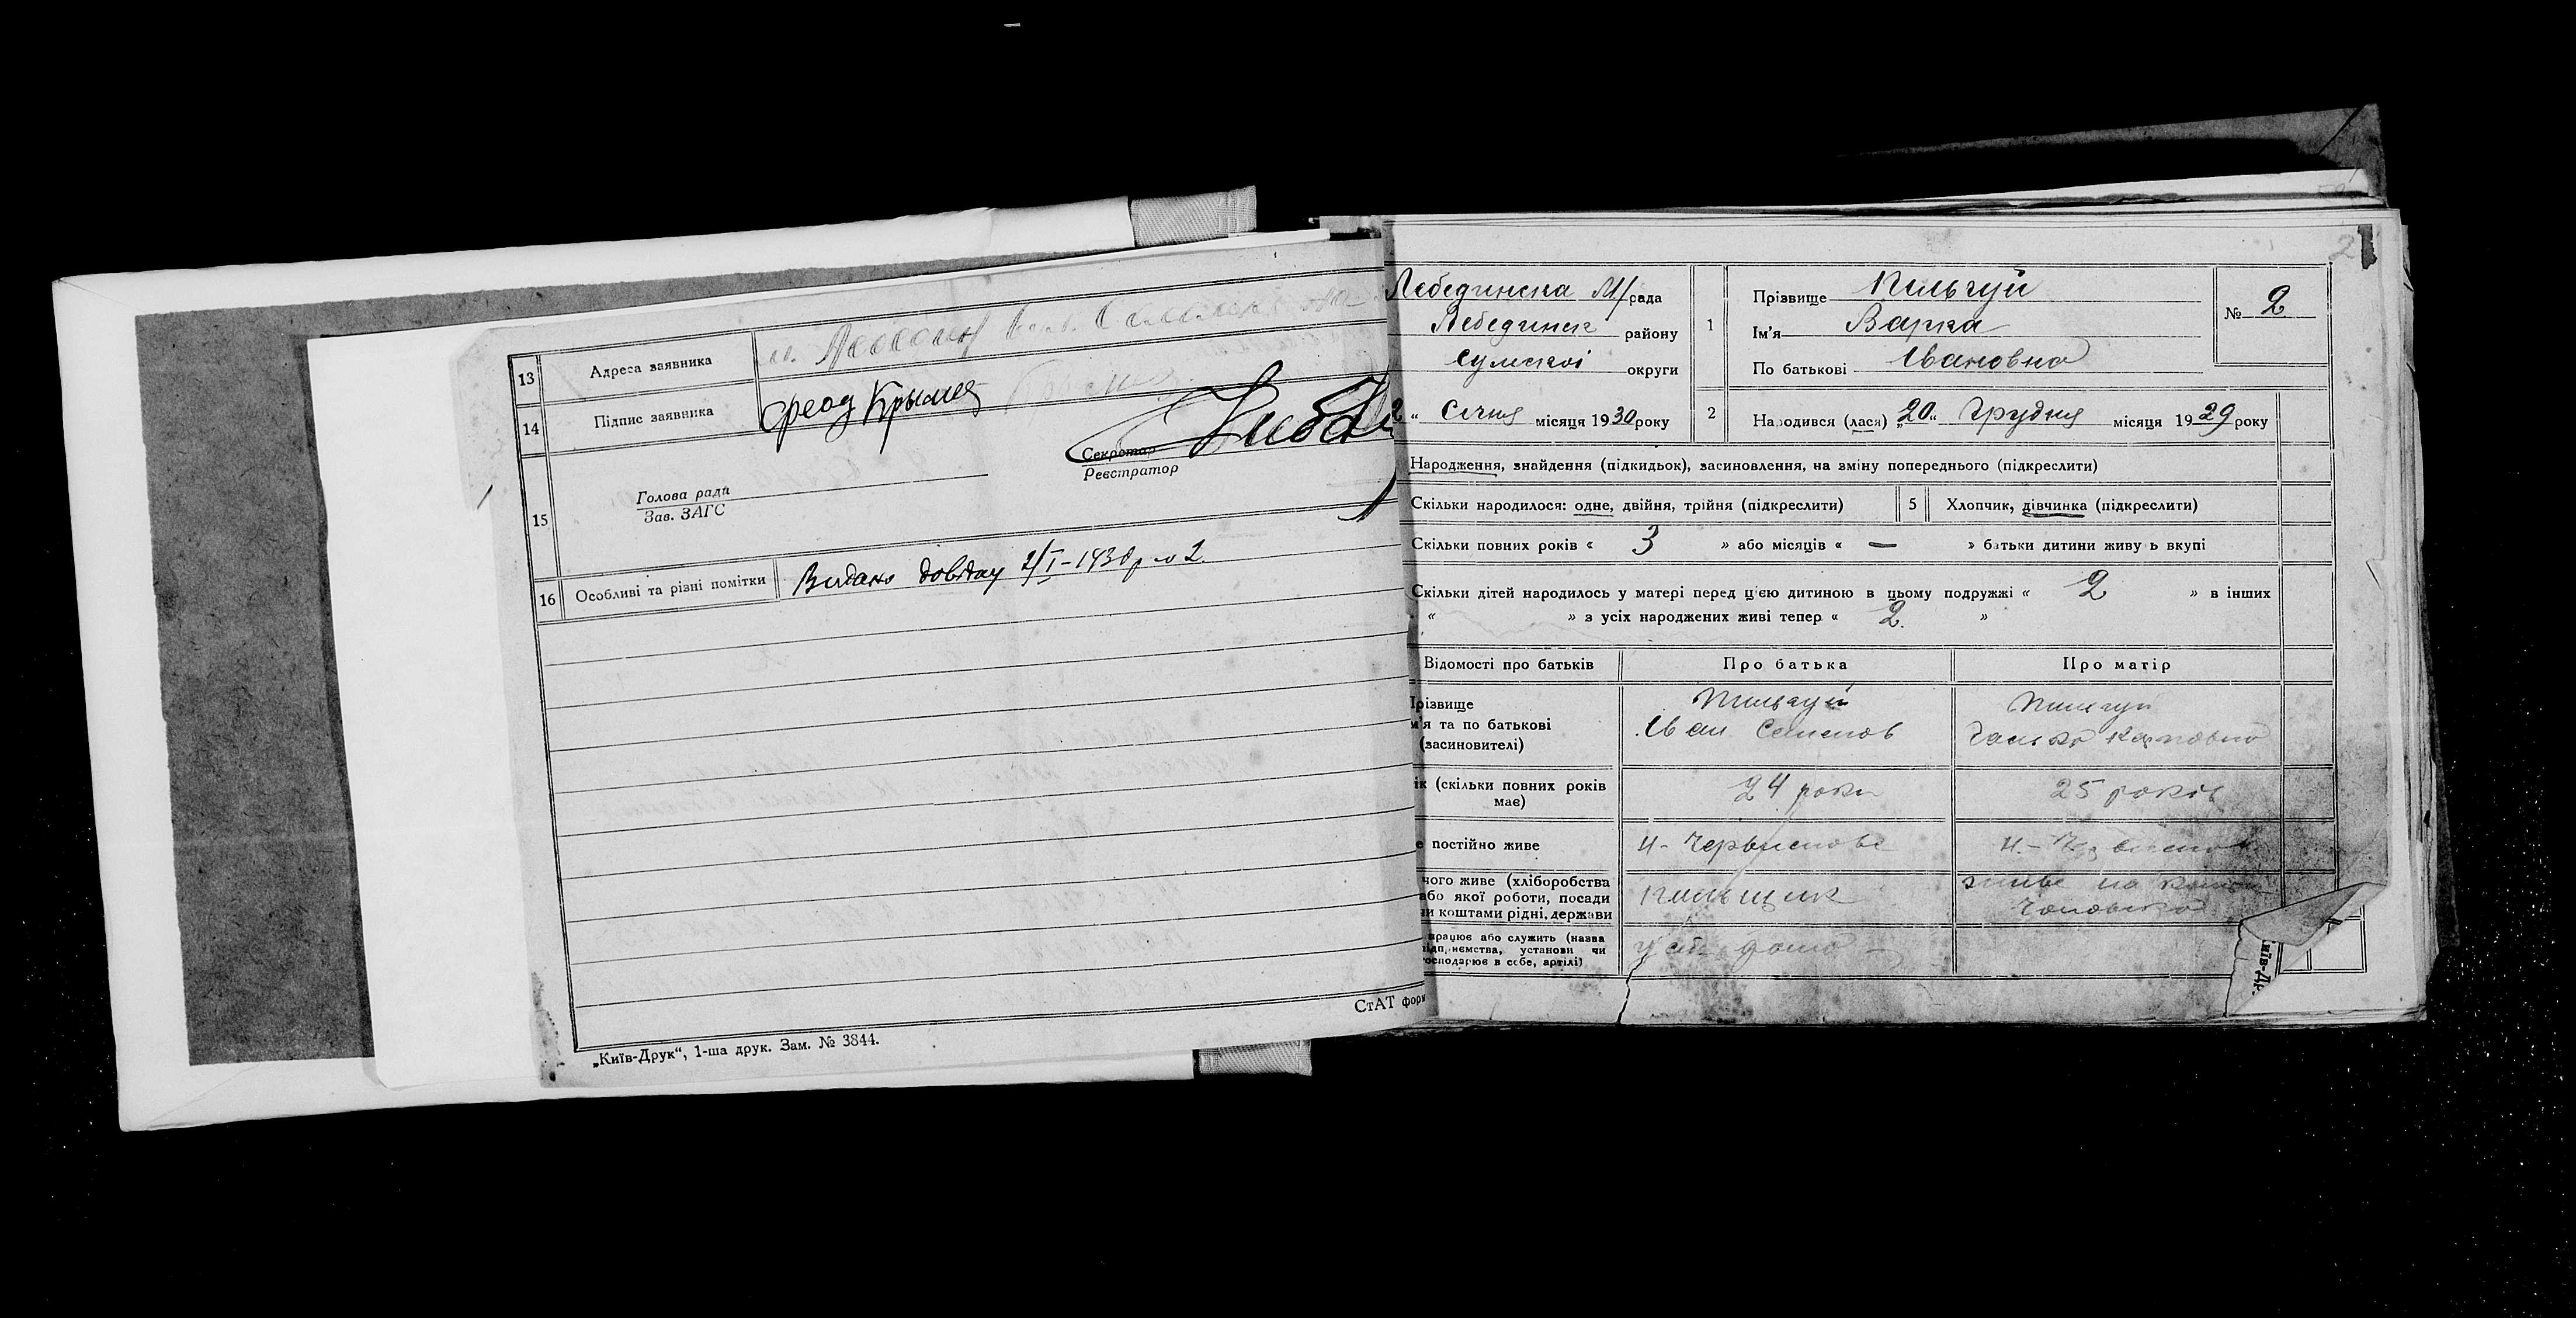 13 Адреса заявника м.
14 Підпис заявника Феод Крымец
15 Голова ради
Зав. ЗАГС
Секретар
Реєстратор
16 Особливі та різні помітки Видано довідку 2/I-1930 р № 2.
СтАТ форм
„Київ-Друк“, 1-ша друк. Зам. № 3844.
2
Лебединска М/рада
Лебединск району
Сумскої округи
2 “ Січня місяця 1930 року
1 Прізвище
Ім'я Варка
По батькові Івановна
№ 2
2 Народився (лася) „20“ Грудня місяця 1929 року
Народження, знайдення (підкидьок), засиновлення, на зміну попереднього (підкреслити)
Скільки народилося: одне, двійня, трійня (підкреслити) 5 Хлопчик, дівчинка (підкреслити)
Скільки повних років « 3 » або місяців « — » батьки дитини живуь вкупі
Скільки дітей народилось у матері перед цією дитиною в цьому подружжі « 2 » в інших
« » з усіх народжених живі тепер « 2. »
Відомості про батьків Про батька Про матір
Прізвище
м'я та по батькові Іван Семенов
(засновителі)
ік (скільки повних років 24 роки 25 років
має)
е постійно живе Н-
чого живе (хліборобства живе на
або якої роботи, посади
чи коштами рідні, держави
працює або служить (назва
підприємства, установи чи
господарює в себе, артілі)
Київ-Др